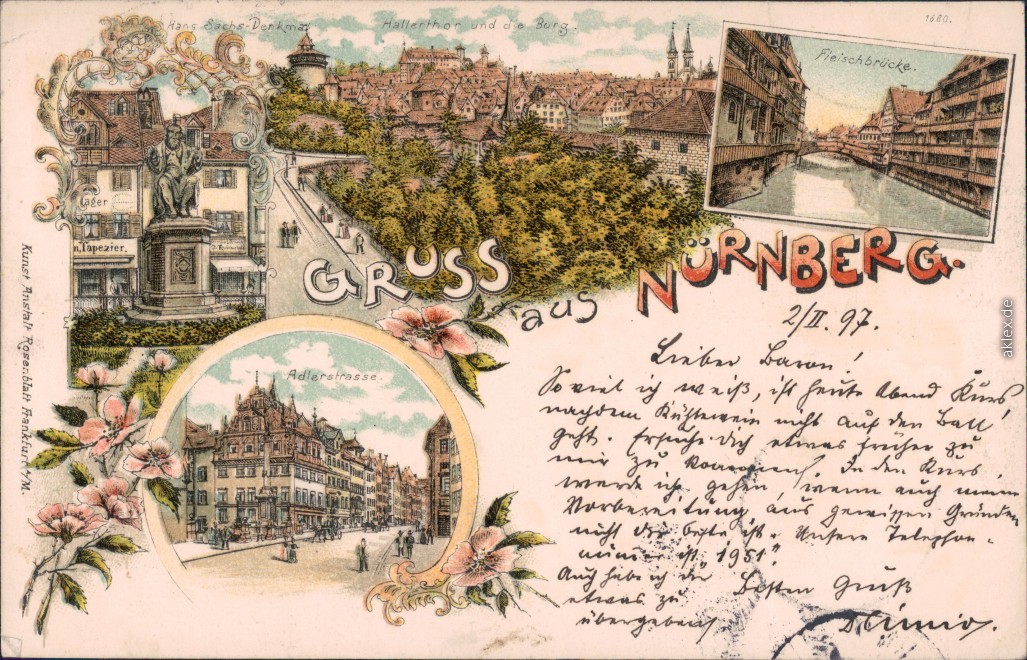 Hans-Sachs-Denkmal
Hallerthor und die Burg.
1680.
Fleischbrücke.
Lager
n, Tapezier.
GRUSS
aus
NÜRNBERG.
Adlerstrasse.
Kunst Anstalt Rosenblatt Frankfurt a/M.
2/II. 97.
Lieber Baron!
Soviel ich weiß, ist heute Abend Kurs,
nachdem nicht auf den Ball
geht. Ersuche Dich etwas früher zu
mir zu kommen. In den Kurs
werde ich gehen, wenn auch meine
Vorbereitung aus gewissen Gründen
nicht die beste ist. Unsere Telephon-
ist „1951“
Auch habe ich Dir
etwas zu
übergeben.
Besten Gruß
aklex.de